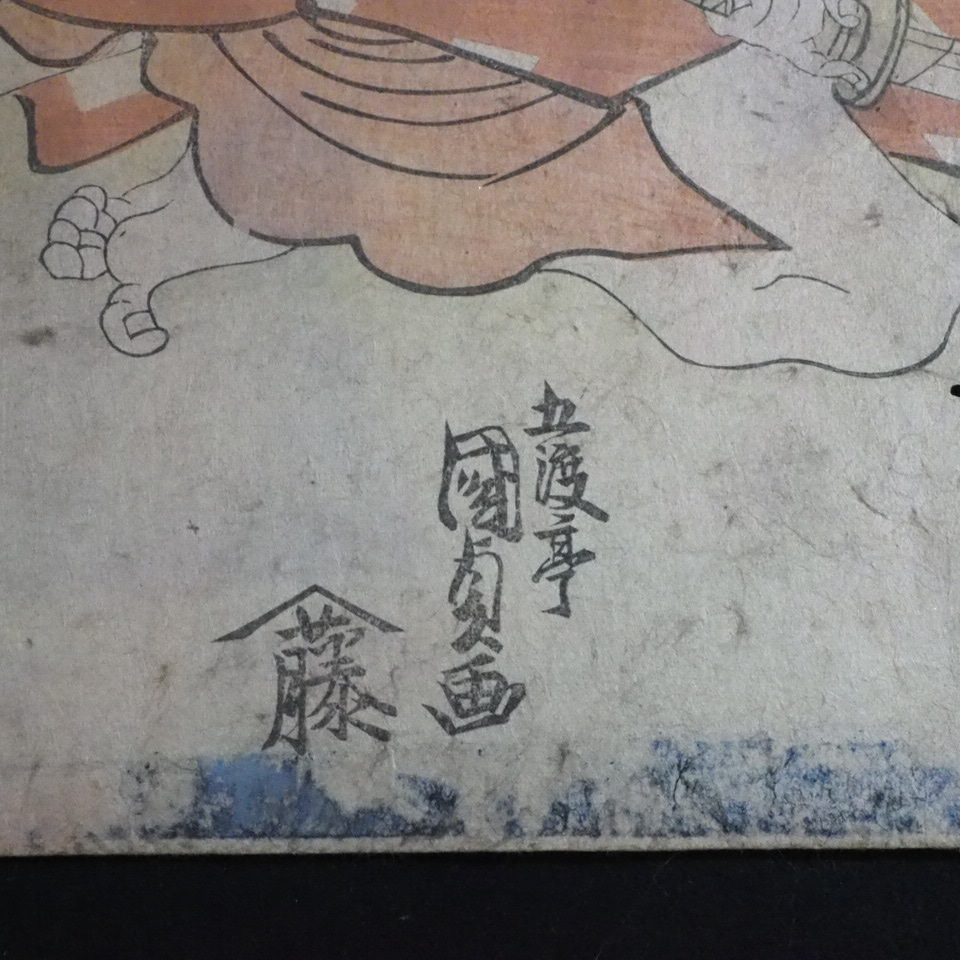 五渡亭
國貞画
藤